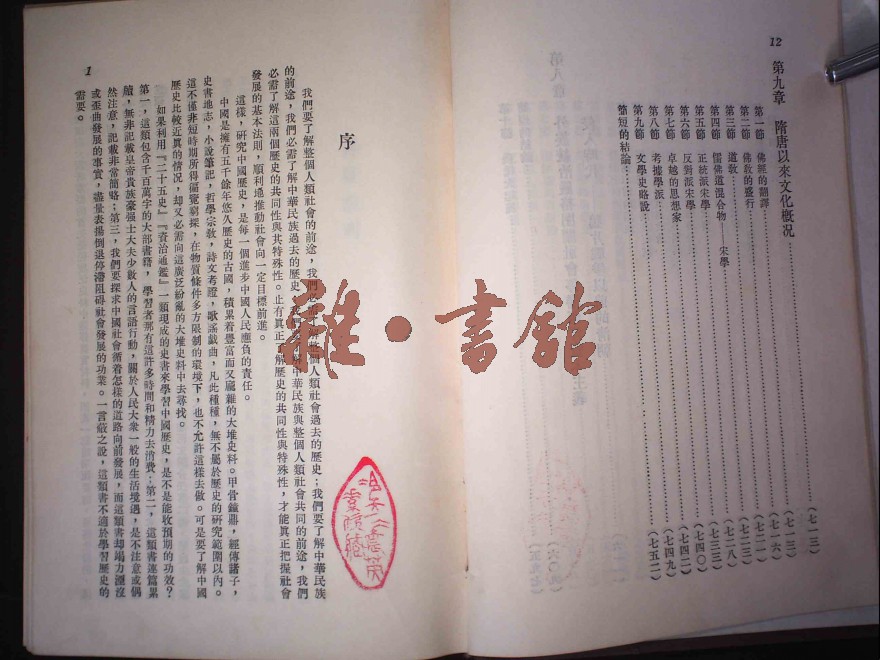 12
第九章 隋唐以來文化概况……(七一三)
第一節 佛經的翻譯……(七一三)
第二節 佛教的盛行……(七一六)
第三節 道敎……(七二一)
第四節 儒佛道混合物——宋學……(七二三)
第五節 正統派宋學……(七二八)
第六節 反對派宋學……(七四〇)
第七節 卓越的思想家……(七四二)
第八節 考據學派……(七四九)
第九節 文學史略說……(七五二)
簡短的結論……
雜·書舘
序
我們要了解整個人類社會的前途，我們必需了解整個人類社會過去的歷史；我們要了解中華民族
的前途，我們必需了解中華民族過去的歷史；我們要了解中華民族與整個人類社會共同的前途，我們
必需了解這兩個歷史的共同性與其特殊性。止有真正了解歷史的共同性與特殊性，才能真正把握社會
發展的基本法則，順利地推動社會向一定目標前進。
這樣，研究中國歷史，是每一個進步中國人民應負的責任。
中國是擁有五千餘年悠久歷史的古國，積累着豐富而又龐雜的大堆史料。甲骨鐘鼎，經傳諸子，
史書地志，小說筆記，哲學宗敎，詩文考證，歌謠戲曲，凡此種種，無不屬於歷史的研究範圍以內。
這不僅非短時期所得徧覽窮探，在物質條件多方限制的環境下，也不允許這樣去做。可是要了解中國
歷史比較近眞的情况，却又必需向這廣泛紛亂的大堆史料中去尋找。
如果利用『二十五史』『資治通鑑』一類現成的史書來學習中國歷史，是不是能收預期的功效？
第一，這類包含千百萬字的大部書籍，學習者那有這許多時間和精力去消費；第二，這類書連篇累
牘，無非記載皇帝貴族豪强士大夫少數人的言語行動，關於人民大衆一般的生活境遇，是不注意或偶
然注意，記載非常簡略；第三，我們要探求中國社會循着怎樣的道路向前發展，而這類書却竭力湮沒
或歪曲發展的事實，盡量表揚倒退停滯阻碍社會發展的功業。一言蔽之說，這類書不適於學習歷史的
需要。
1